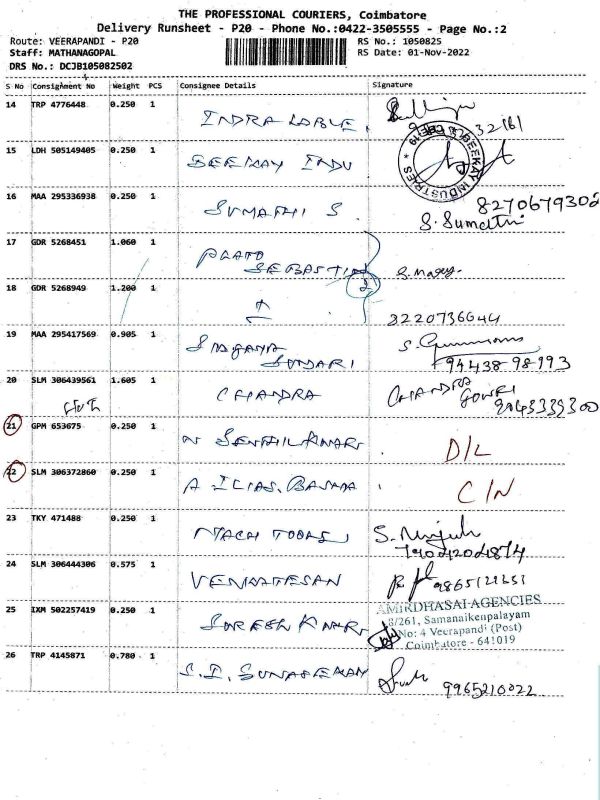 THE PROFESSIONAL COURIERS, Coimbatore
Delivery Runsheet - P20 - Phone No.:0422-3505555 - Page No.:2
Route: VEERAPANDI - P20 RS No.: 1050825
Staff: MATHANAGOPAL RS Date: 01-Nov-2022
DRS No.: DCJB105082502
S No Consignment No Weight PCS Consignee Details Signature
14 TRP 4776448 0.250 1 INDRA
15 LDH 505149405 0.250 1 BEEKAY INDU
BEEKAY INDUSTRIES
16 MAA 295336938 0.250 1 SUMATHI S. 8270679302
S. Sumathi
17 GDR 5268451 1.060 1 PLATO
SEBASTIN
2
18 GDR 5268949 1.200 1
19 MAA 295417569 0.905 1
SUNDARI 94438 98993
20 SLM 306439561 1.605 1 CHANDRA CHANDRA
GOWRI
21 GPM 653675 0.250 1 N SENTHILKUMAR D/L
22 SLM 306372860 0.250 1 A ILIAS. BASHA C/N
23 TKY 471488 0.250 1 MACH TOOLS
24 SLM 306444306 0.575 1 VENKATESAN
25 IXM 502257419 0.250 1 SURESH KUMAR
AMIRDHASAI AGENCIES
8/261, Samanaikenpalayam
No: 4 Veerapandi (Post)
Coimbatore - 641019
26 TRP 4145871 0.780 1 9965210022